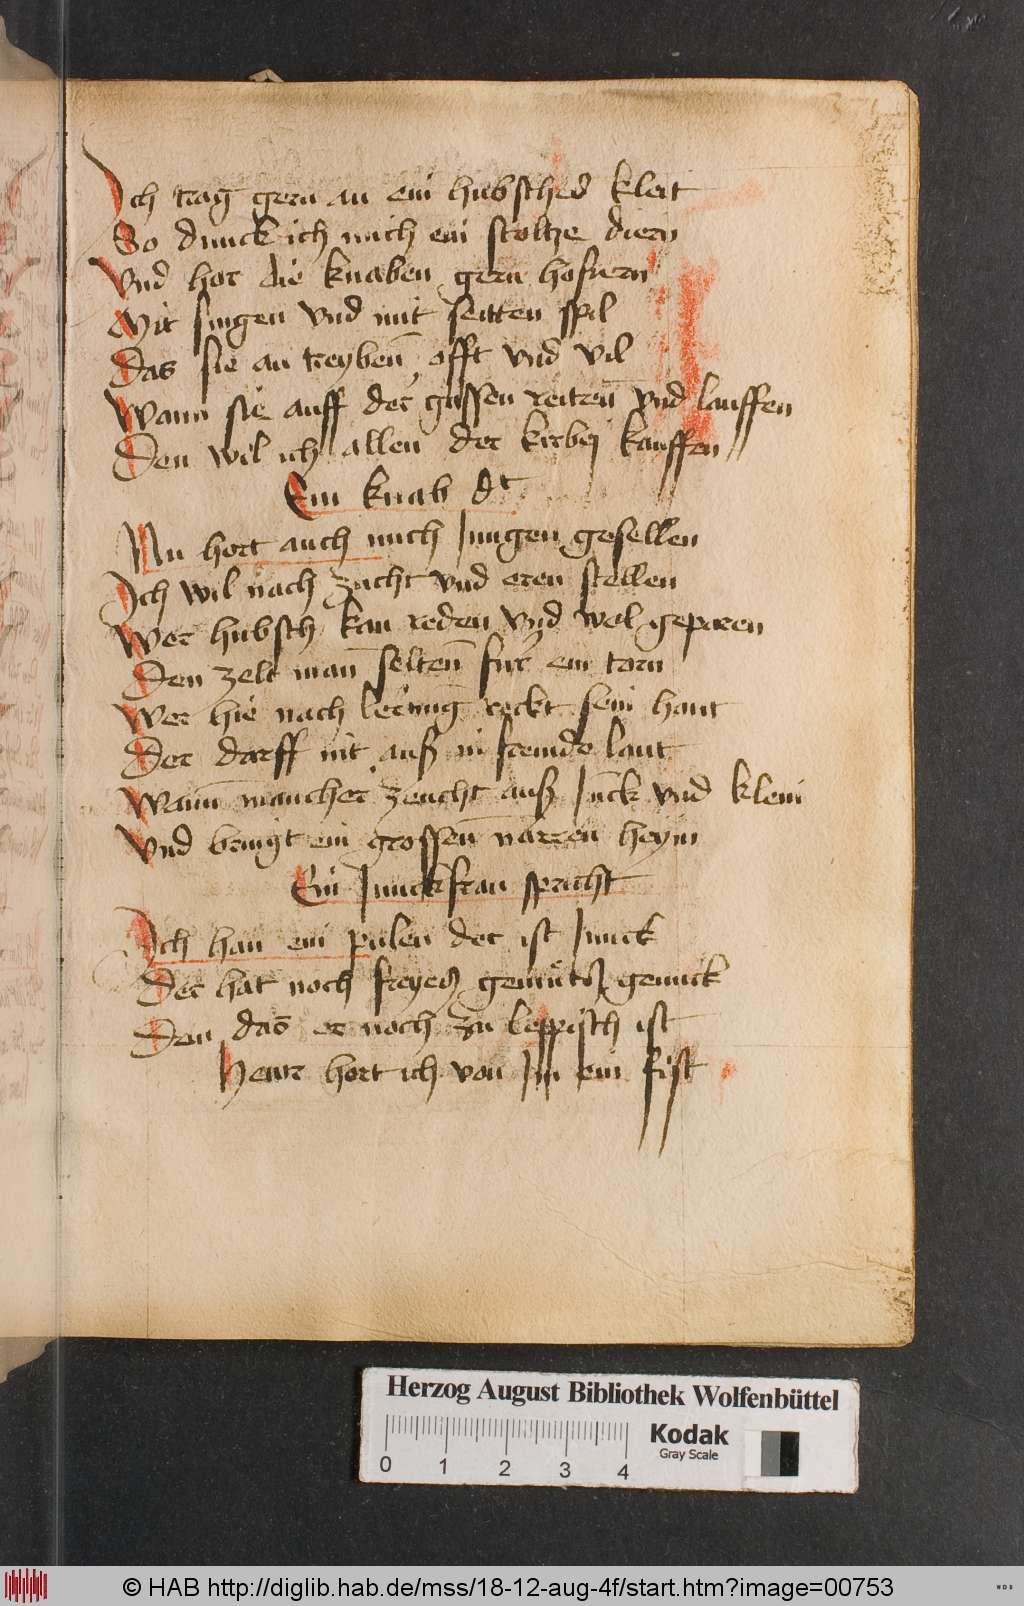 Ich trag gern an ein hubsches kleit
So dunck ich mich ein stoltze diern
Vnd hor die knaben gern hofirn
Mit singen vnd mit seitten spil
Das sie an treyben offt vnd vil
Wann sie auff der gassen reiten vnd lauffen
Den wil ich allen der kirbej kauffen
Ein knab dt
Nu hort auch mich Jungen gesellen
Ich wil nach zucht vnd eren stellen
Wer hubsch kan reden vnd wol geparen
Den zelt man selten fur ein torn
Wer hie nach lernung reckt sein hant
Der darff nit auß in fremde lant
Wann mancher zeucht auß Junck vnd klein
Vnd bringt ein grossen narren heym
Ein Junckfrau spricht
Ich han ein pulen der ist Junck
Der hat noch freyes gemütz genunck
Den das er noch zu leppisch ist
Hewr hort ich von Jm ein fist
Herzog August Bibliothek Wolfenbüttel
Kodak
Gray Scale
0 1 2 3 4
© HAB http://diglib.hab.de/mss/18-12-aug-4f/start.htm?image=00753